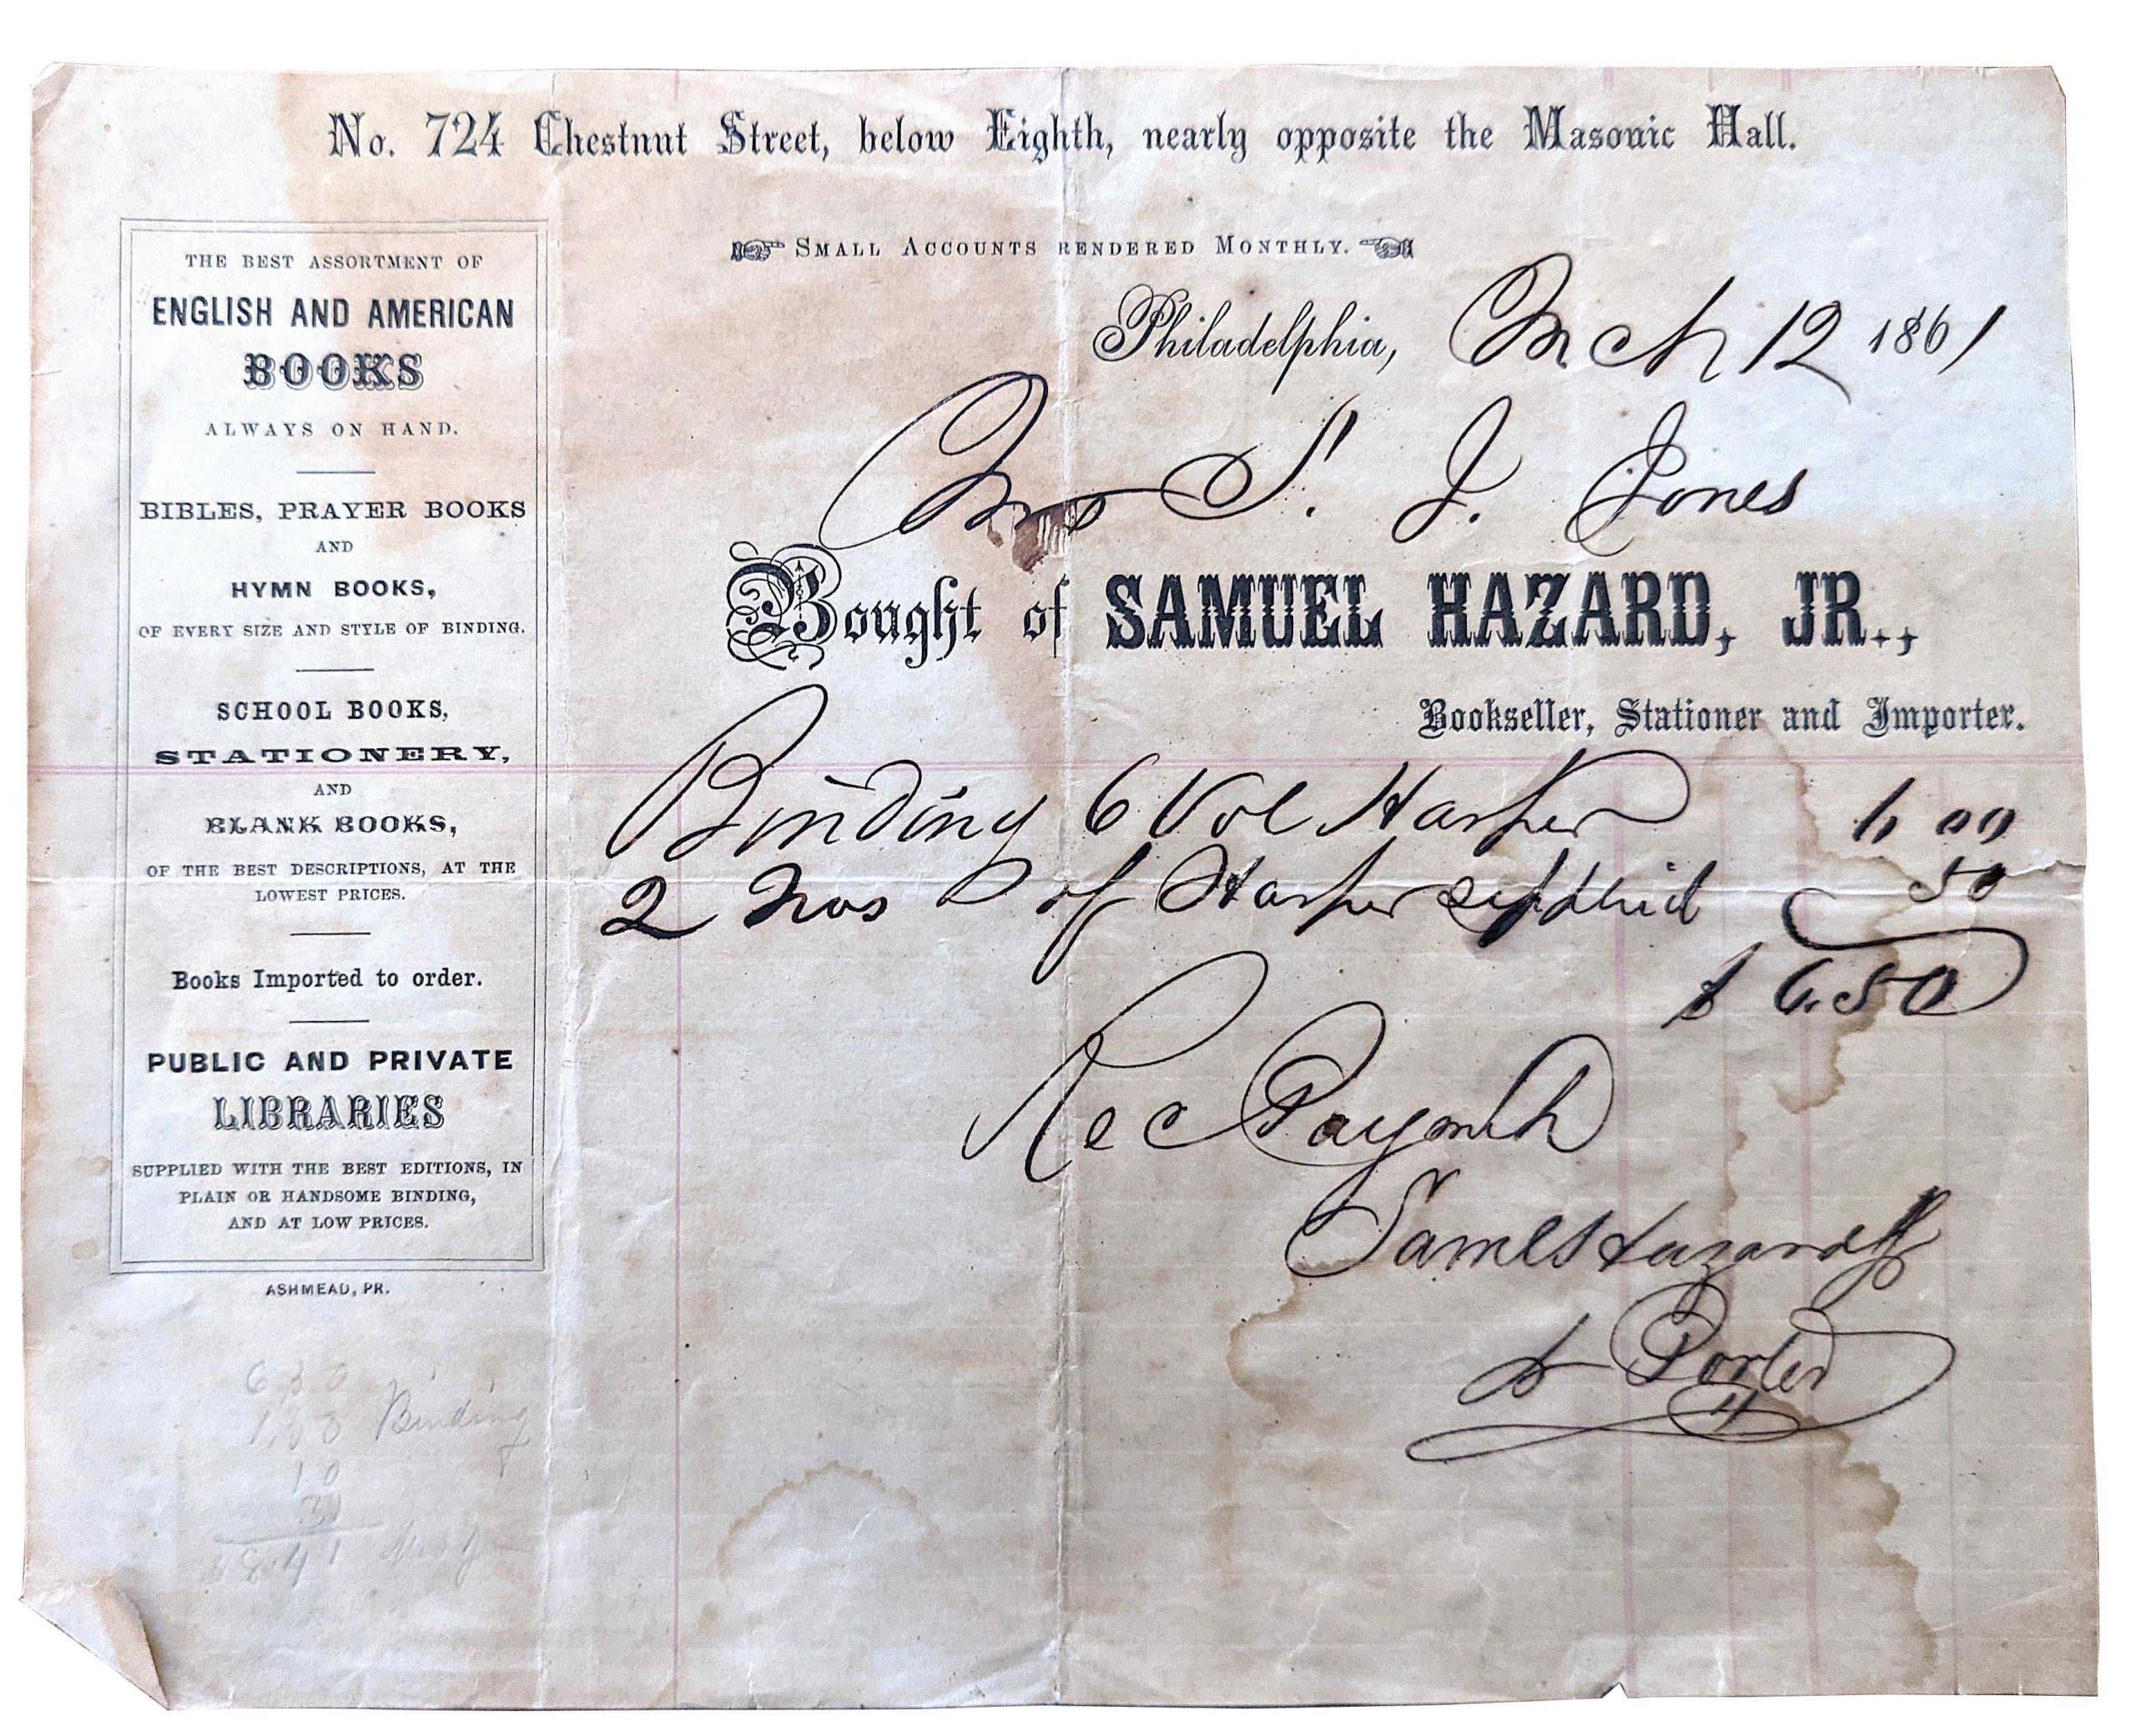 No. 724 Chestnut Street, below Eighth, nearly opposite the Masonic Hall.
SMALL ACCOUNTS RENDERED MONTHLY.
Philadelphia, Mch 12 1861
S. J. Jones
Bought of SAMUEL HAZARD, JR.,
Bookseller, Stationer and Importer.
Binding 6 Vol Harper 6 00
2 Nos of Harper supplied 50
$ 6.50
Rec Paymt
Saml Hazard Jr
Porter
THE BEST ASSORTMENT OF
ENGLISH AND AMERICAN
BOOKS
ALWAYS ON HAND.
BIBLES, PRAYER BOOKS
AND
HYMN BOOKS,
OF EVERY SIZE AND STYLE OF BINDING.
SCHOOL BOOKS,
STATIONERY,
AND
BLANK BOOKS,
OF THE BEST DESCRIPTIONS, AT THE
LOWEST PRICES.
Books Imported to order.
PUBLIC AND PRIVATE
LIBRARIES
SUPPLIED WITH THE BEST EDITIONS, IN
PLAIN OR HANDSOME BINDING,
AND AT LOW PRICES.
ASHMEAD, PR.
Binding
10